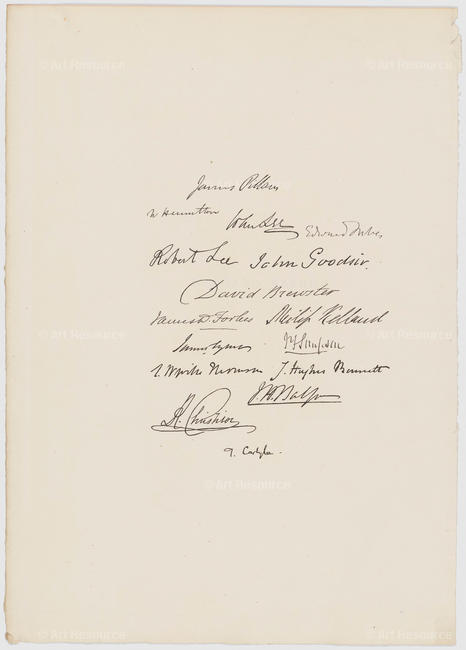 James Pillans
W Hamilton John Lee Edward Forbes
Robert Lee John Goodsir.
David Brewster
James D. Forbes Philip Kelland
James Syme JYSimpson
J. Hughes Bennett
J.H. Balfour
R. Christison
T. Carlyle.
© Art Resource
© Art Resource
© Art Resource
© Art Resource
© Art Resource
© Art Resource
© Art Resource
© Art Resource